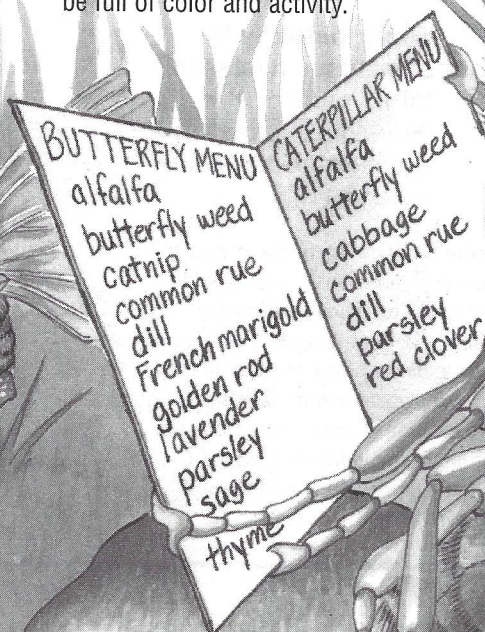 be full of color and activity.
BUTTERFLY MENU
alfalfa
butterfly weed
catnip
common rue
dill
French marigold
golden rod
lavender
parsley
sage
thyme
CATERPILLAR MENU
alfalfa
butterfly weed
cabbage
common rue
dill
parsley
red clover